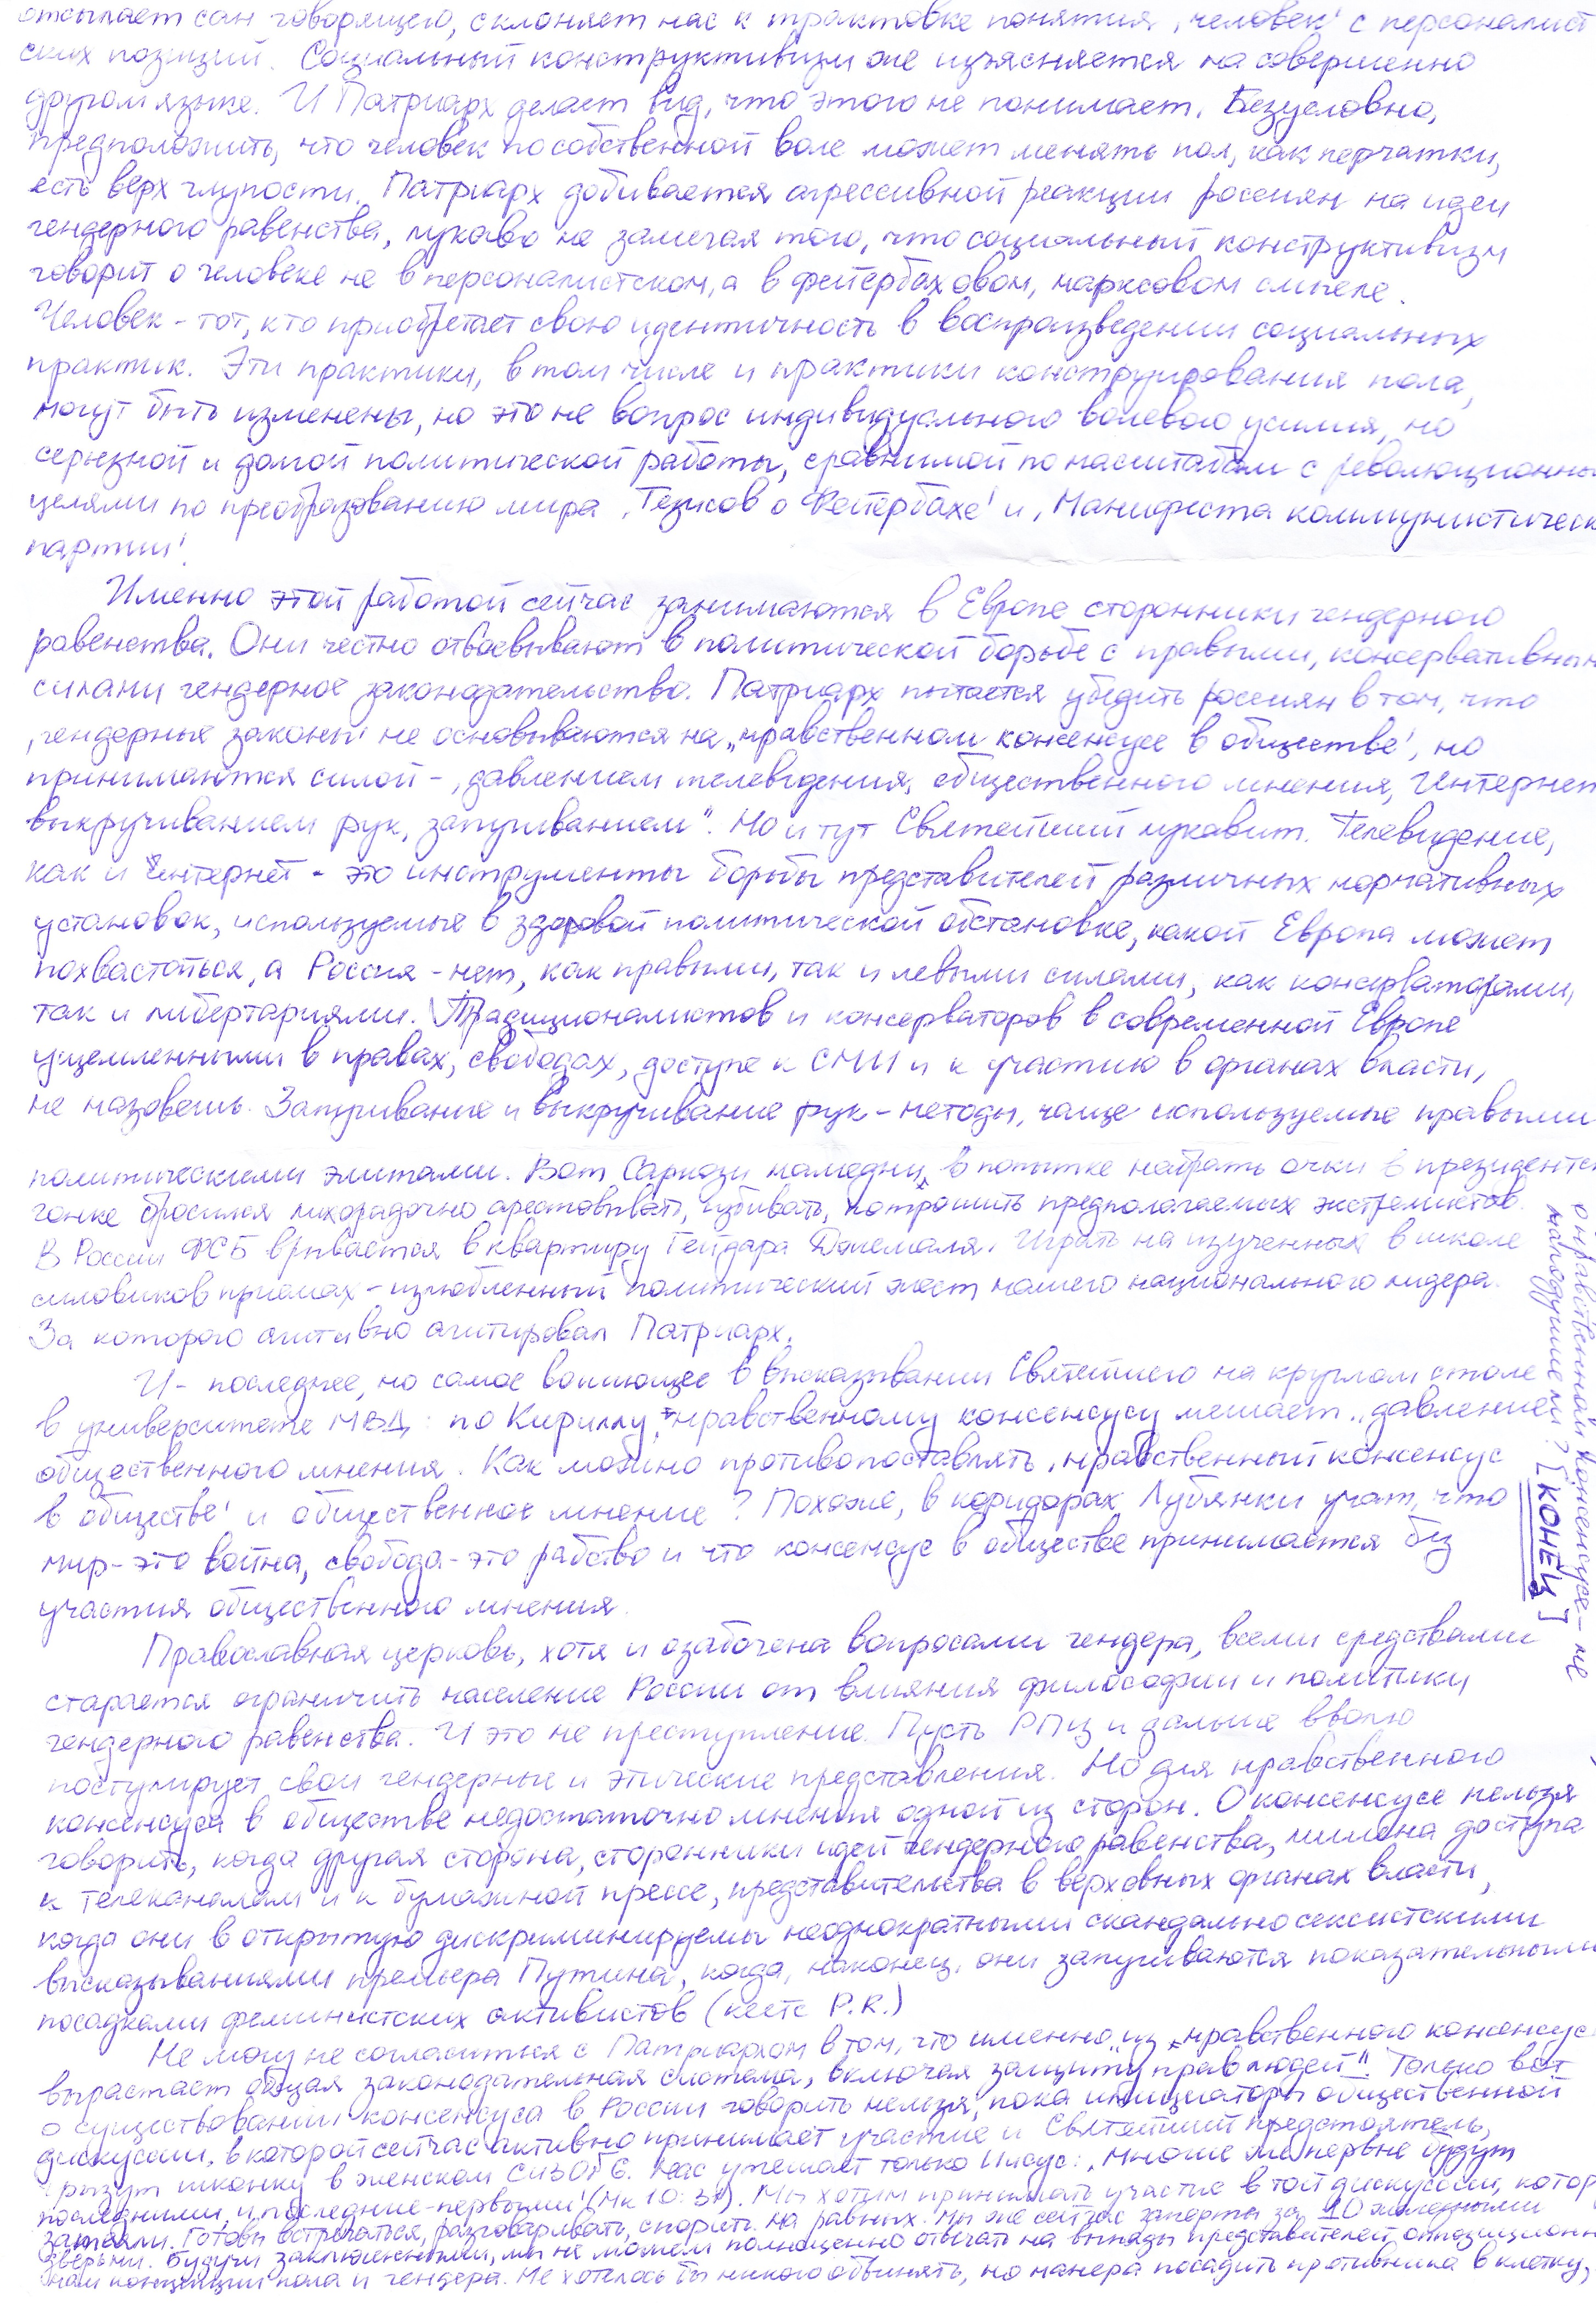 отсылает сан говорящего, склоняет нас к трактовке понятия ‚человек' с персоналист
ских позиций. Социальный конструктивизм же изъясняется на совершенно
другом языке. И Патриарх делает вид, что этого не понимает. Безусловно,
предположить, что человек по собственной воле может менять пол, как перчатки,
есть верх глупости. Патриарх добивается агрессивной реакции россиян на идеи
гендерного равенства, лукаво не замечая того, что социальный конструктивизм
говорит о человеке не в персоналистском, а в фейербаховом, марксовом смысле.
Человек - тот, кто приобретает свою идентичность в воспроизведении социальных
практик. Эти практики, в том числе и практики конструирования пола,
могут быть изменены, но это не вопрос индивидуального волевого усилия, но
серьезной и долгой политической работы, сравнимой по масштабам с революционны
целями по преобразованию мира ‚Тезисов о Фейербахе' и ‚Манифеста коммунистическ
партии'
Именно этой работой сейчас занимаются в Европе сторонники гендерного
равенства. Они честно отвоевывают в политической борьбе с правыми, консервативным
силами гендерное законодательство. Патриарх пытается убедить россиян в том, что
‚гендерные законы' не основываются на „нравственном консенсусе в обществе', но
принимаются силой - ‚давлением телевидения, общественного мнения, Интернет
выкручиванием рук, запугиванием". Но и тут Святейший лукавит. Телевидение,
как и Интернет - это инструменты борьбы представителей различных нормативных
установок, используемые в здоровой политической обстановке, какой Европа может
похвастаться, а Россия - нет, как правыми, так и левыми силами, как консерваторами,
так и либертариями. Традиционалистов и консерваторов в современной Европе
ущемленными в правах, свободах, доступе к СМИ и к участию в органах власти,
не назовешь. Запугивание и выкручивание рук - методы, чаще используемые правыми
политическими элитами. Вот Саркози намедни, в попытке набрать очки в президентс
гонке бросился лихорадочно арестовывать, избивать, потрошить предполагаемых экстремистов.
В России ФСБ врывается в квартиру Гейдара Джемаля. Играть на изученных в школе
силовиков приемах - излюбленный политический жест нашего национального лидера.
За которого активно агитировал Патриарх.
И - последнее, но самое вопиющее в высказывании Святейшего на круглом столе
в университете МВД: по Кириллу, нравственному консенсусу мешает „давление
общественного мнения. Как можно противопоставлять ‚нравственный консенсус
в обществе' и общественное мнение? Похоже, в коридорах Лубянки учат, что
мир - это война, свобода - это рабство и что консенсус в обществе принимается без
участия общественного мнения.
Православная церковь, хотя и озабочена вопросами гендера, всеми средствами
старается ограничить население России от влияния философии и политики
гендерного равенства. И это не преступление. Пусть РПЦ и дальше вволю
постулирует свои гендерные и этические представления. Но для нравственного
консенсуса в обществе недостаточно мнения одной из сторон. О консенсусе нельзя
говорить, когда другая сторона, сторонники идей гендерного равенства, лишена доступа
к телеканалам и к бумажной прессе, представительства в верховных органах власти,
когда они в открытую дискриминируемы неоднократными скандально сексистскими
высказываниями премьера Путина, когда, наконец, они запугиваются показательными
посадками феминистских активистов (кейс P.R.)
Не могу не согласиться с Патриархом в том, что именно „из „нравственного консенсус
вырастает общая законодательная система, включая защиту прав людей". Только вот
о существовании консенсуса в России говорить нельзя, пока инициаторы общественной
дискуссии, в которой сейчас активно принимает участие и Святейший предстоятель,
грызут шконку в женском СИЗО № 6. Нас утешает только Иисус: ‚Многие же первые будут
последними, и последние - первыми' (Мк 10:31). Мы хотим принимать участие в той дискуссии, котор
затеяли. Готовы встречаться, разговаривать, спорить. На равных. Мы же сейчас заперты за 10 железными
дверьми. Будучи заключенными, мы не можем полноценно отвечать на выпады представителей оппозиционн
нам концепции пола и гендера. Не хотелось бы никого обвинять, но манера посадить противника в клетку,
о нравственном консенсусе - не
малодушие ли? [КОНЕЦ]